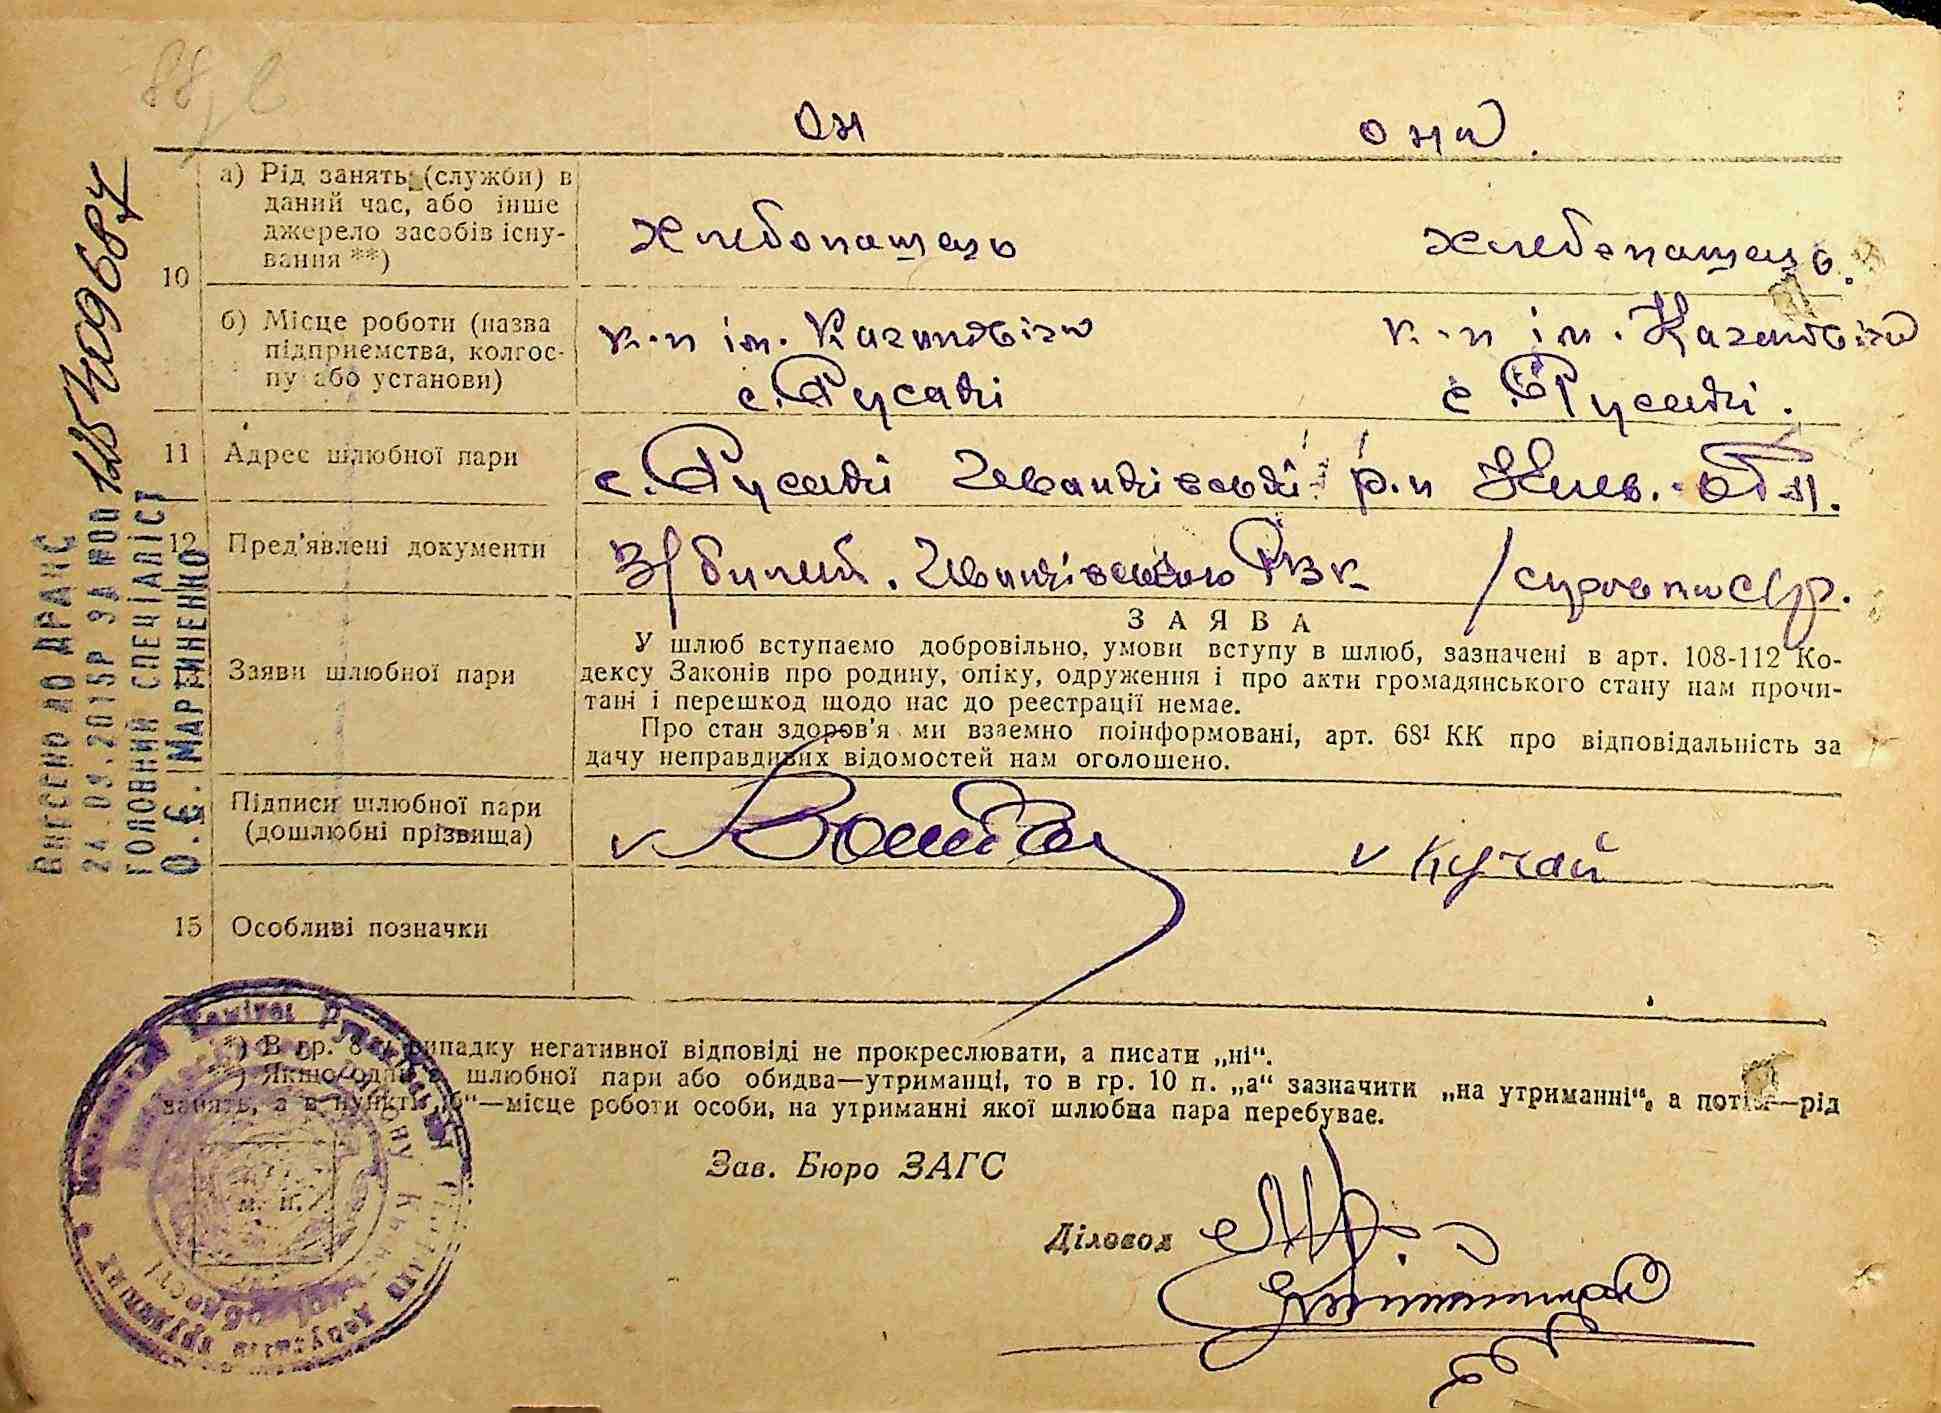 88
он она.
10 а) Рід занять (служби) в
даний час, або інше
джерело засобів існу-
вання **)
хлебопашець хлебопашець.
б) Місце роботи (назва
підприємства, колгос-
пу або установи)
к-п ім. Кагановіча к-п ім. Кагановіча
с. Русаки с. Русаки.
11 Адрес шлюбної пари
с. Русаки Іванківський р-н Київ. обл.
12 Пред'явлені документи
В/билет. Іванківського РВК
Заяви шлюбної пари
ЗАЯВА
У шлюб вступаємо добровільно, умови вступу в шлюб, зазначені в арт. 108-112 Ко-
дексу Законів про родину, опіку, одруження і про акти громадянського стану нам прочи-
тані і перешкод щодо нас до реєстрації немає.
Про стан здоров'я ми взаємно поінформовані, арт. 68¹ КК про відповідальність за
дачу неправдивих відомостей нам оголошено.
Підписи шлюбної пари
(дошлюбні прізвища)
v v Кучай
15 Особливі позначки
*) В гр. 8 у випадку негативної відповіді не прокреслювати, а писати „ні“.
**) Якщо один з шлюбної пари або обидва—утриманці, то в гр. 10 п. „а“ зазначити „на утриманні“, а потім—рід
занять, а в пункті „б“—місце роботи особи, на утриманні якої шлюбна пара перебуває.
Зав. Бюро ЗАГС
Діловод
м. п.
ВНЕСЕНО ДО ДРАЦС
24.09.2015Р ЗА №00125409684
ГОЛОВНИЙ СПЕЦІАЛІСТ
О.Є. МАРТИНЕНКО